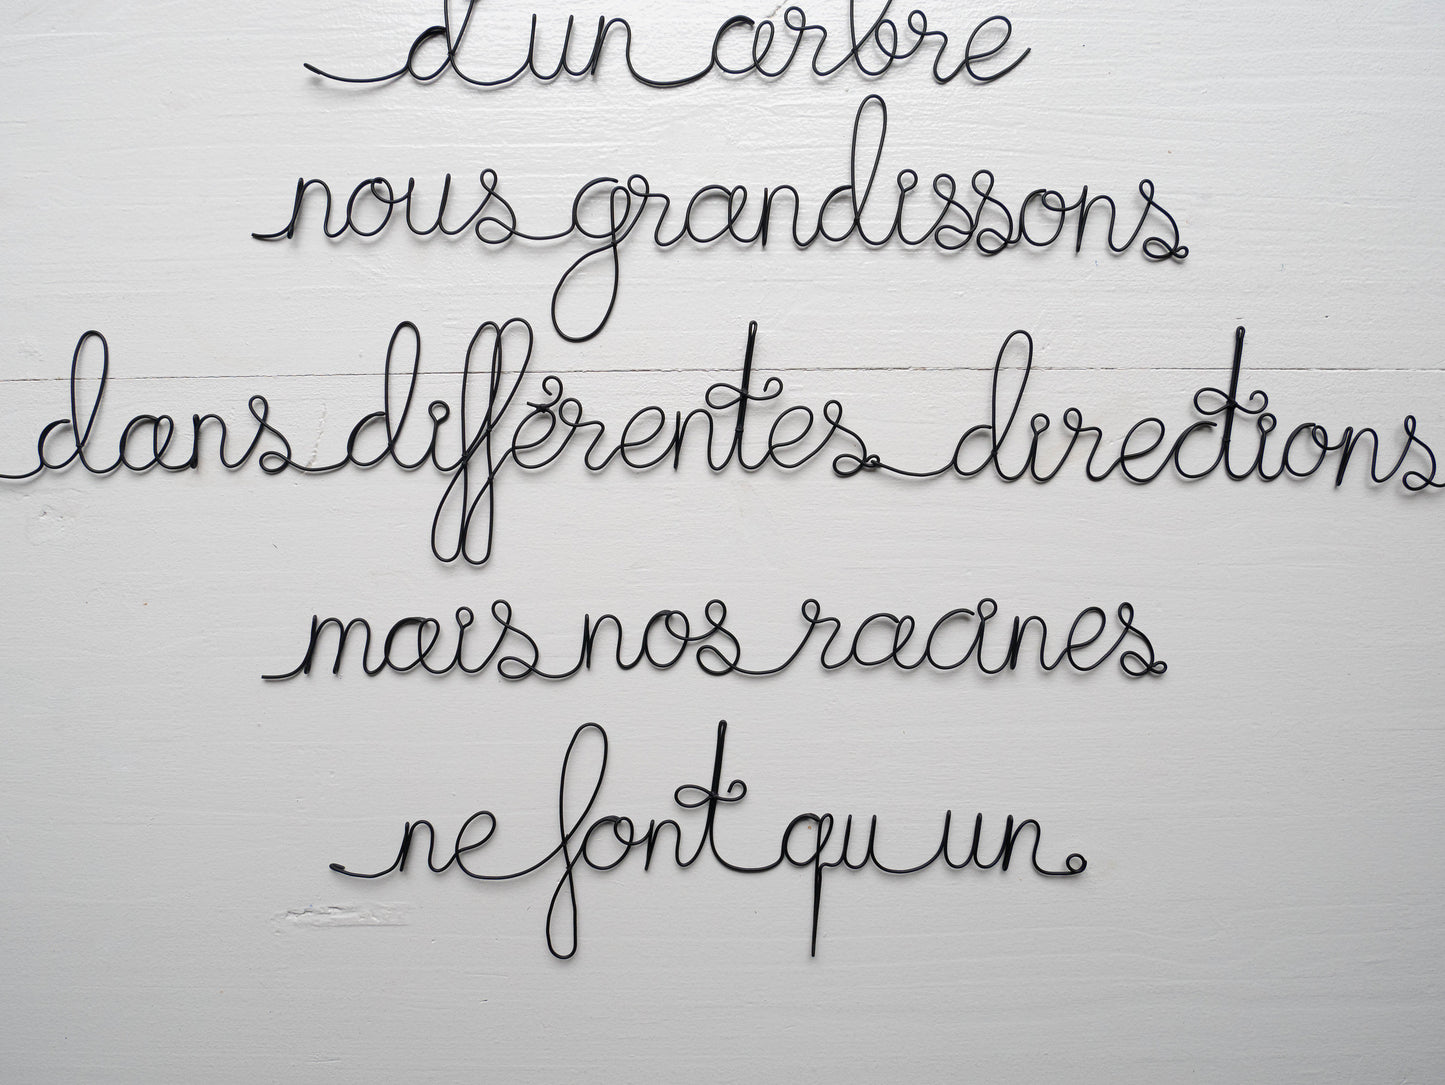 d'un arbre
nous grandissons
dans différentes directions
mais nos racines
ne font qu un